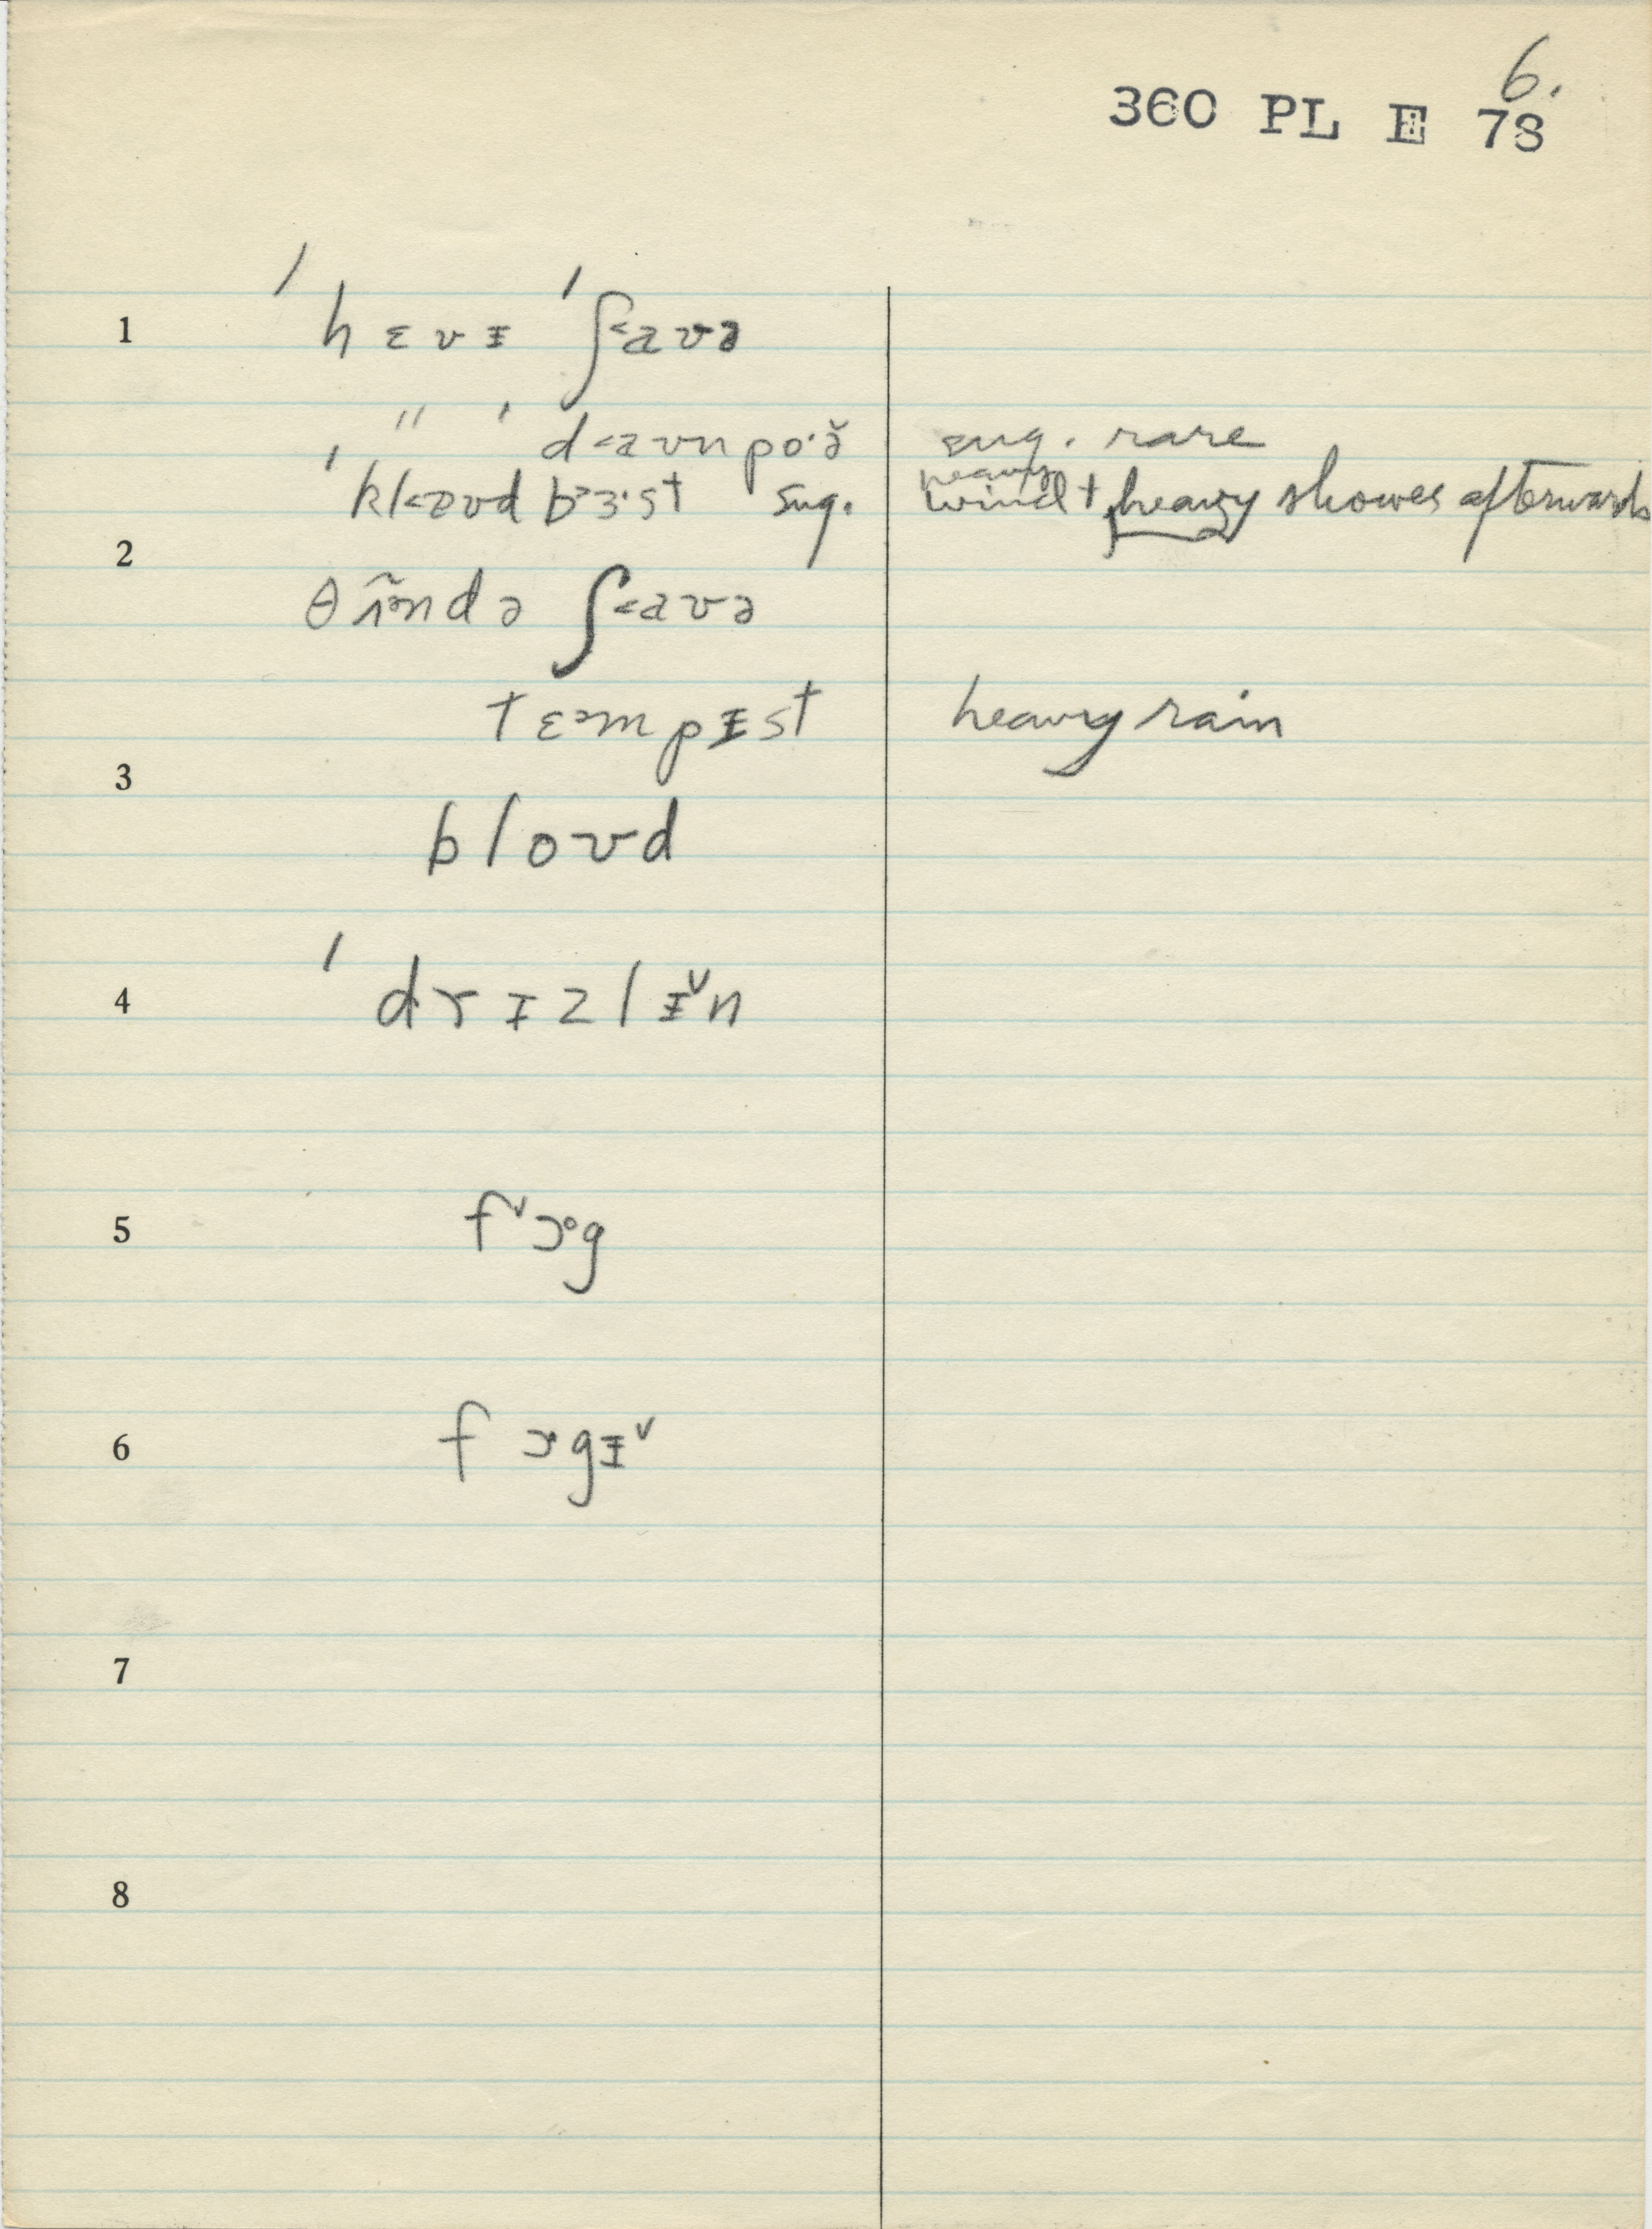 6.
360 PL E 78
1 ˈhɛvɪ ˈʃ˂aʊə
" ˈd˂aʊnpo·ə̆ sug. rare
ˈkl˂aʊdbᵊɜ·st sug. heavy wind + heavy showes afterwards
2
θɐ̃ᵊndə ʃ˂aʊə
tɛᵊmpɪst heavy rain
3
bloʊd
4 ˈdrɪzlɪ˅n
5 f˅ɔᵒg
6 fɔ·gɪ˅
7
8